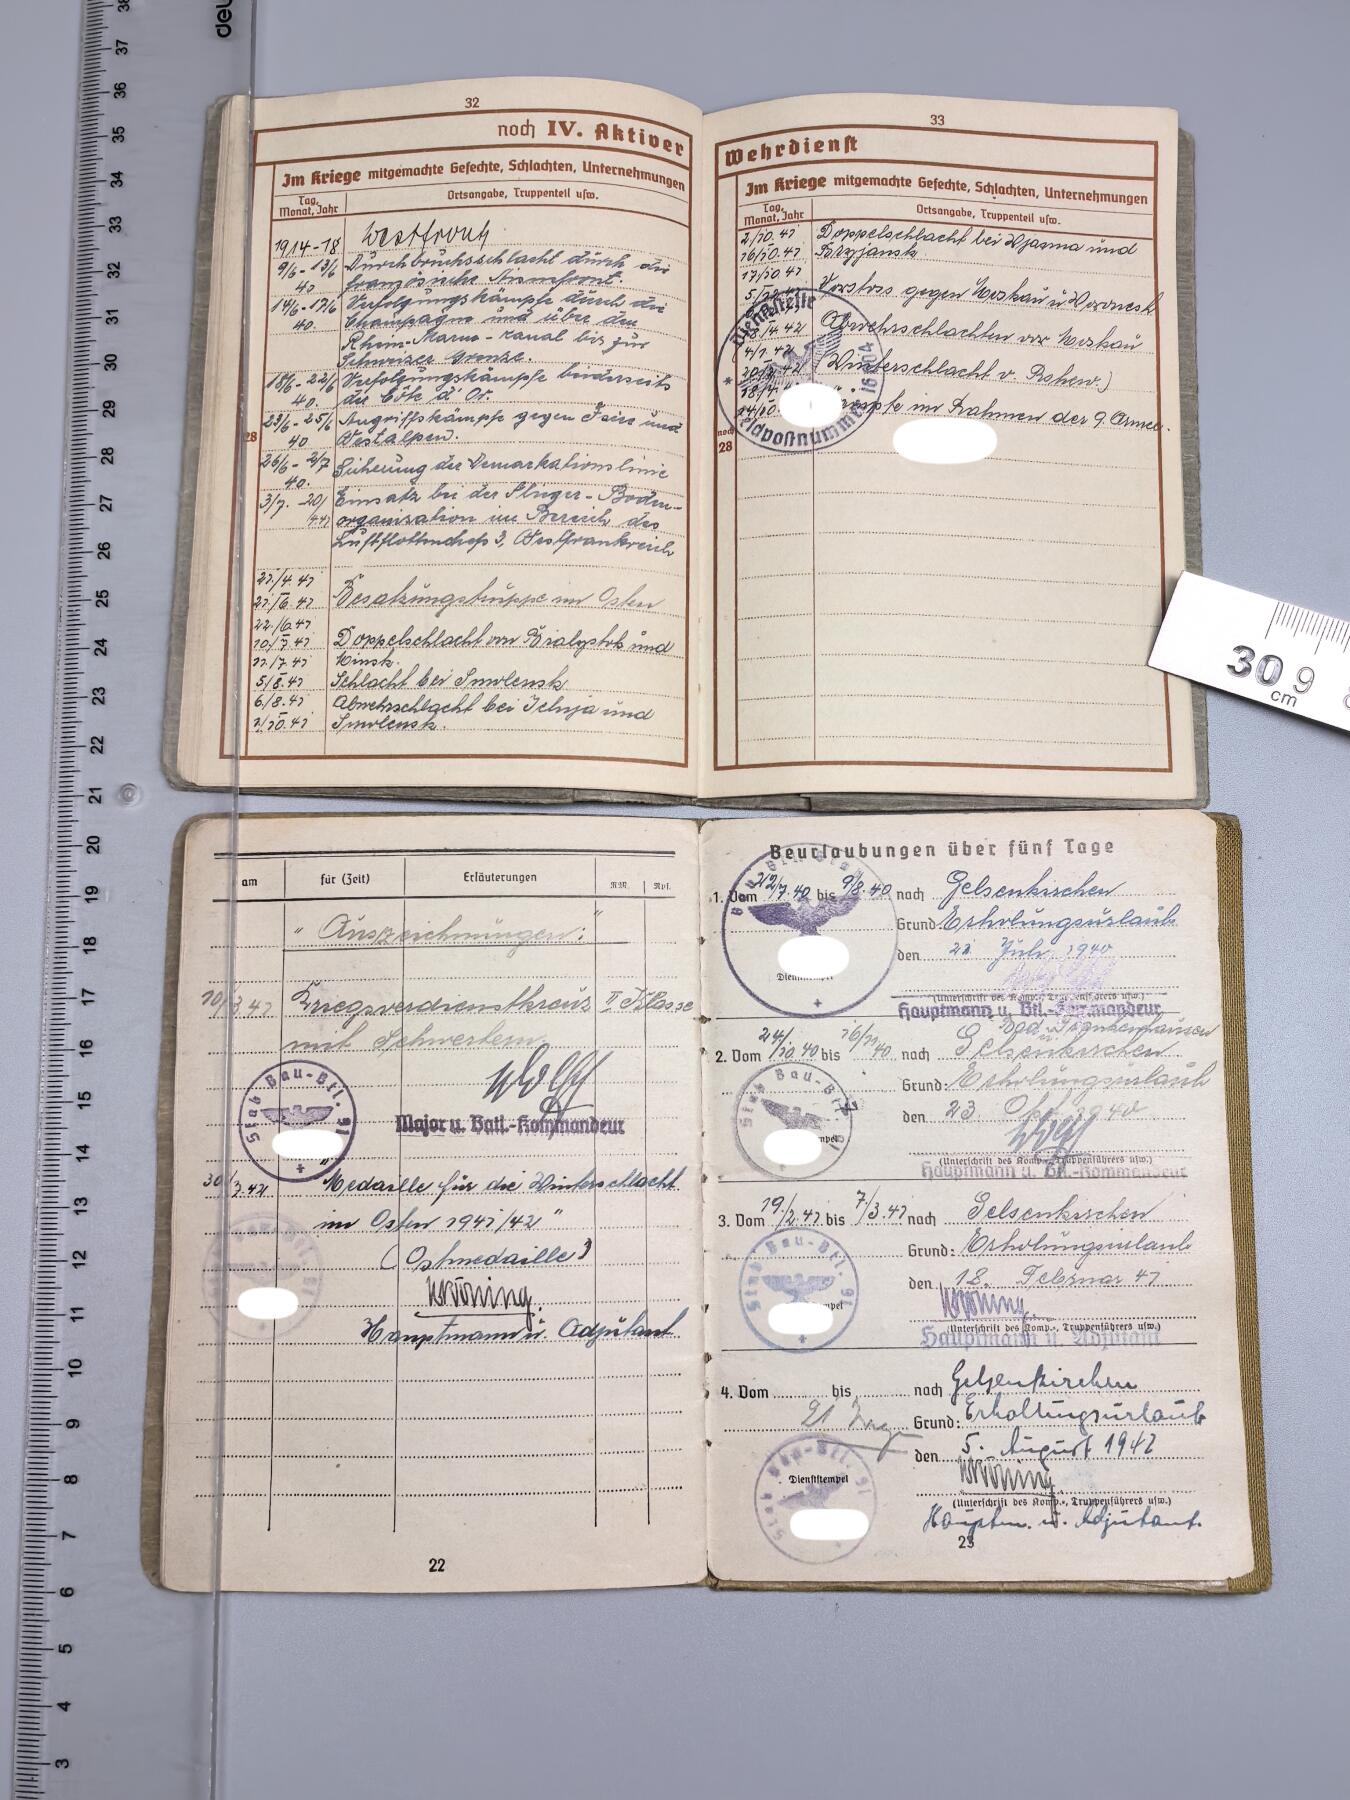 32
noch IV. Aktiver
Im Kriege mitgemachte Gefechte, Schlachten, Unternehmungen
Tag, Monat, Jahr
Ortsangabe, Truppenteil usw.
1914-18 Westfront
9/6 - 13/6 Durchbruchsschlacht durch die
40 französische Aisnefront.
14/6 - 17/6 Verfolgungskämpfe durch die
40. Champagne und über den
Rhein-Marne-Kanal bis zur
Schweizer Grenze.
18/6 - 22/6 Verfolgungskämpfe beiderseits
40. der Côte d'Or.
23/6 - 25/6 Angriffskämpfe gegen Isère und
40 Westalpen.
28
26/6 - 2/7 Sicherung der Demarkationslinie
40.
3/7. - 20/ Einsatz bei der Flieger-Boden-
organisation im Bereich des
Luftflottenchefs 3, Westfrankreich
21./4.41
21./6.41 Besatzungstruppe im Osten
22./6.41
10/7.41 Doppelschlacht von Bialystok und
11./7.41 Minsk.
5/8.41 Schlacht bei Smolensk
6/8.41 Abwehrschlacht bei Jelnja und
1/10.41 Smolensk.
33
Wehrdienst
Im Kriege mitgemachte Gefechte, Schlachten, Unternehmungen
Tag, Monat, Jahr
Ortsangabe, Truppenteil usw.
2/10.41 Doppelschlacht bei Wjasma und
16/10.41 Brjansk.
17/10.41
Vorstoss gegen Moskau u. Woronesh
Abwehrschlachten vor Moskau
(Winterschlacht v. Rshew.)
im Rahmen der 9. Armee.
noch 28
Dienststelle
Feldpostnummer
30 9
cm
am
für (Zeit)
Erläuterungen
RM.
Rpf.
"Auszeichnungen:"
10/3.41 Kriegsverdienstkreuz II Klasse
mit Schwertern.
Wolff
Major u. Batl.-Kommandeur
Stab Bau-Btl. 91
"Medaille für die Winterschlacht
im Osten 1941/42"
(Ostmedaille)
Kröning
Hauptmann u. Adjutant
22
Beurlaubungen über fünf Tage
1. Vom 22/7.40 bis 9/8.40 nach Gelsenkirchen
Grund: Erholungsurlaub
den 21 Juli 1940
Dienststempel
(Unterschrift des Komp.-, Truppenführers usw.)
Hauptmann u. Btl.-Kommandeur
Bad Frankenhausen
2. Vom 24/10.40 bis 16/11.40 nach Gelsenkirchen
Grund: Erholungsurlaub
den 23 Okt. 1940
Wolff
Stab Bau-Btl. 91
(Unterschrift des Komp.-, Truppenführers usw.)
Hauptmann u. Btl.-Kommandeur
3. Vom 19./2.41 bis 7/3.41 nach Gelsenkirchen
Grund: Erholungsurlaub
den 18. Februar 41
Kröning
Stab Bau-Btl. 91
(Unterschrift des Komp.-, Truppenführers usw.)
Hauptmann u. Adjutant
4. Vom bis nach Gelsenkirchen
21 Tage
Grund: Erholungsurlaub
den 5. August 1942
Kröning
Stab Bau-Btl. 91
Dienststempel
(Unterschrift des Komp.-, Truppenführers usw.)
Hauptm. u. Adjutant.
23